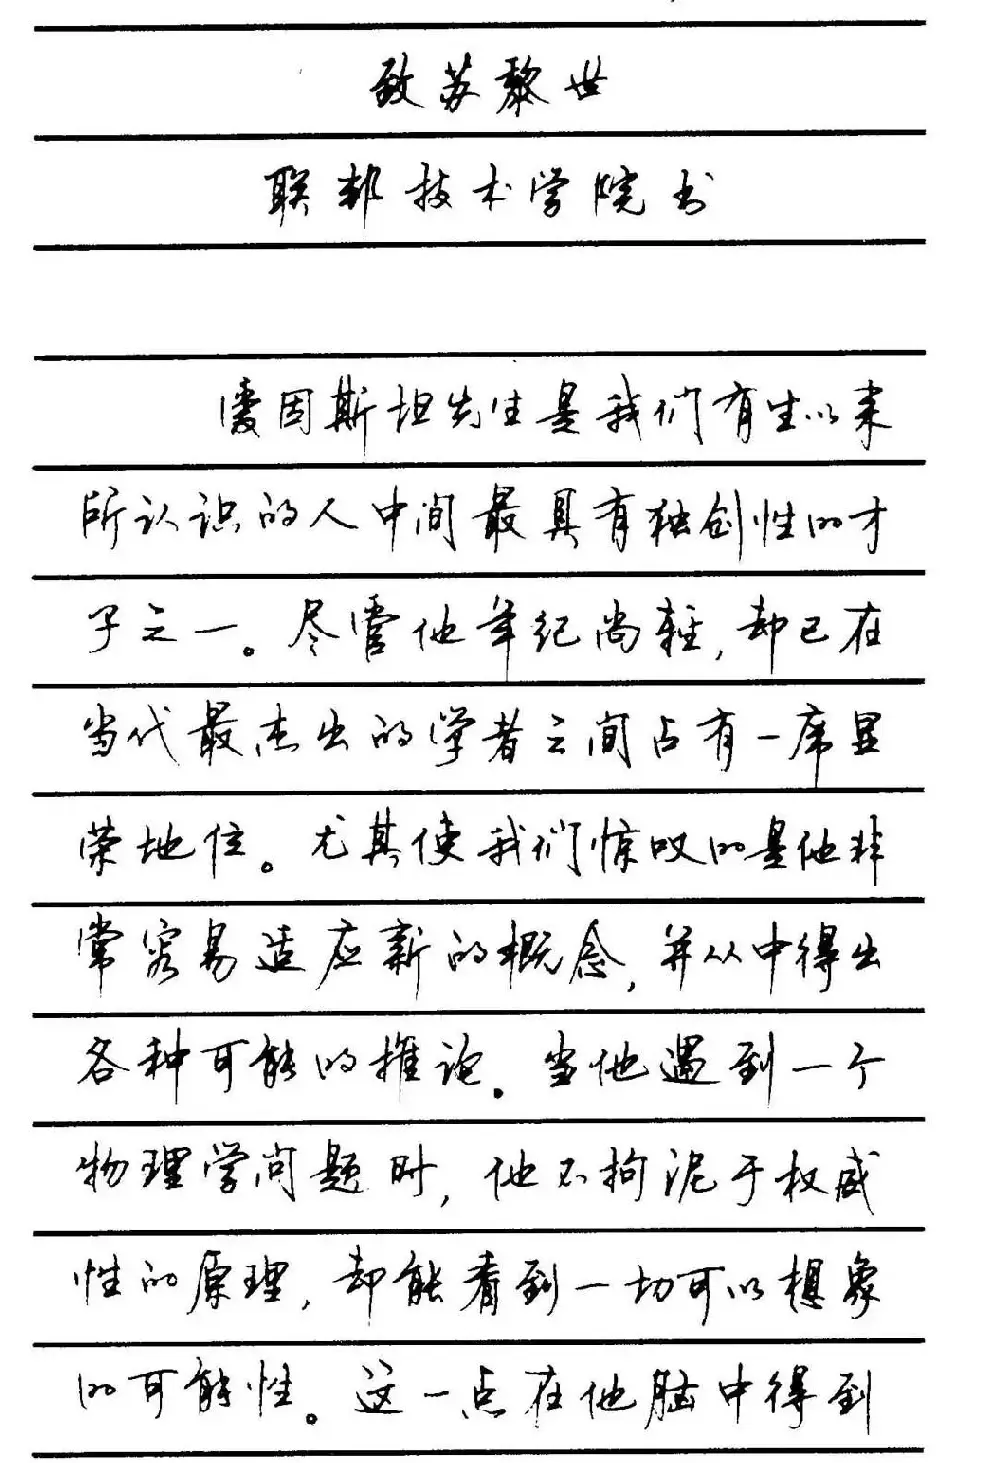 致苏黎世
联邦技术学院书
爱因斯坦先生是我们有生以来
所认识的人中间最具有独创性的才
子之一。尽管他年纪尚轻,却已在
当代最杰出的学者之间占有一席显
荣地位。尤其使我们惊叹的是他非
常容易适应新的概念,并从中得出
各种可能的推论。当他遇到一个
物理学问题时,他不拘泥于权威
性的原理,却能看到一切可以想象
的可能性。这一点在他脑中得到